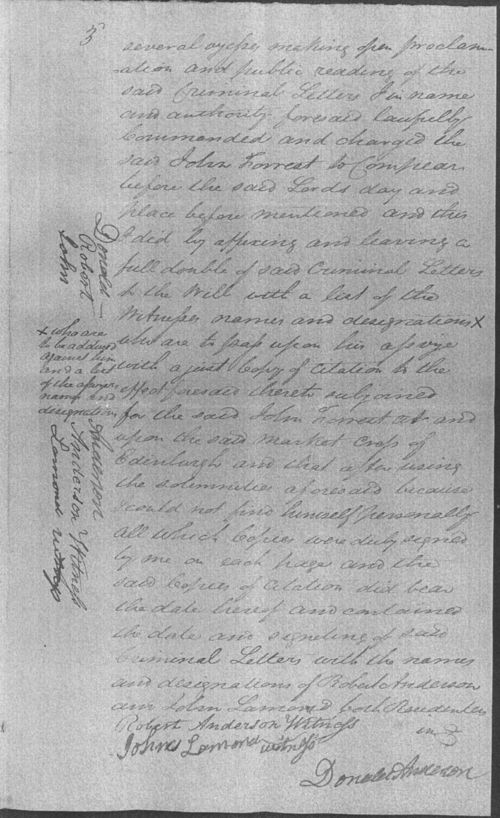 5
several oyesses making open proclam
ation and public reading of the
said Criminal Letters I in name
and authority foresaid lawfully
Commanded and charged the
said John Forrest to Compear
before the said Lords day and
place before mentioned and this
I did by affixing and leaving a
full double of said Criminal Letters
to the Will with a list of the
Witnesses names and designations x
who are to pass upon his assyse
with a just Copy of Citation to the
effect foresaid thereto subjoined
for the said John Forrest at and
upon the said market Cross of
Edinburgh and that after using
the solemnities aforesaid because
I could not find himself personally
all which Copies were duly signed
by me on each page and the
said Copies of Citation did bear
the date hereof and contained
the date and signeting of said
Criminal Letters with the names
and designations of Robert Anderson
and John Lamond both Residenters
in
Robert Anderson Witness
John Lamond witness
Donald Anderson
x who are
to be adduced
against him
and a list
of the assyse
names and
designations
Donald Anderson
Robert Anderson Witness
John Lamond witness